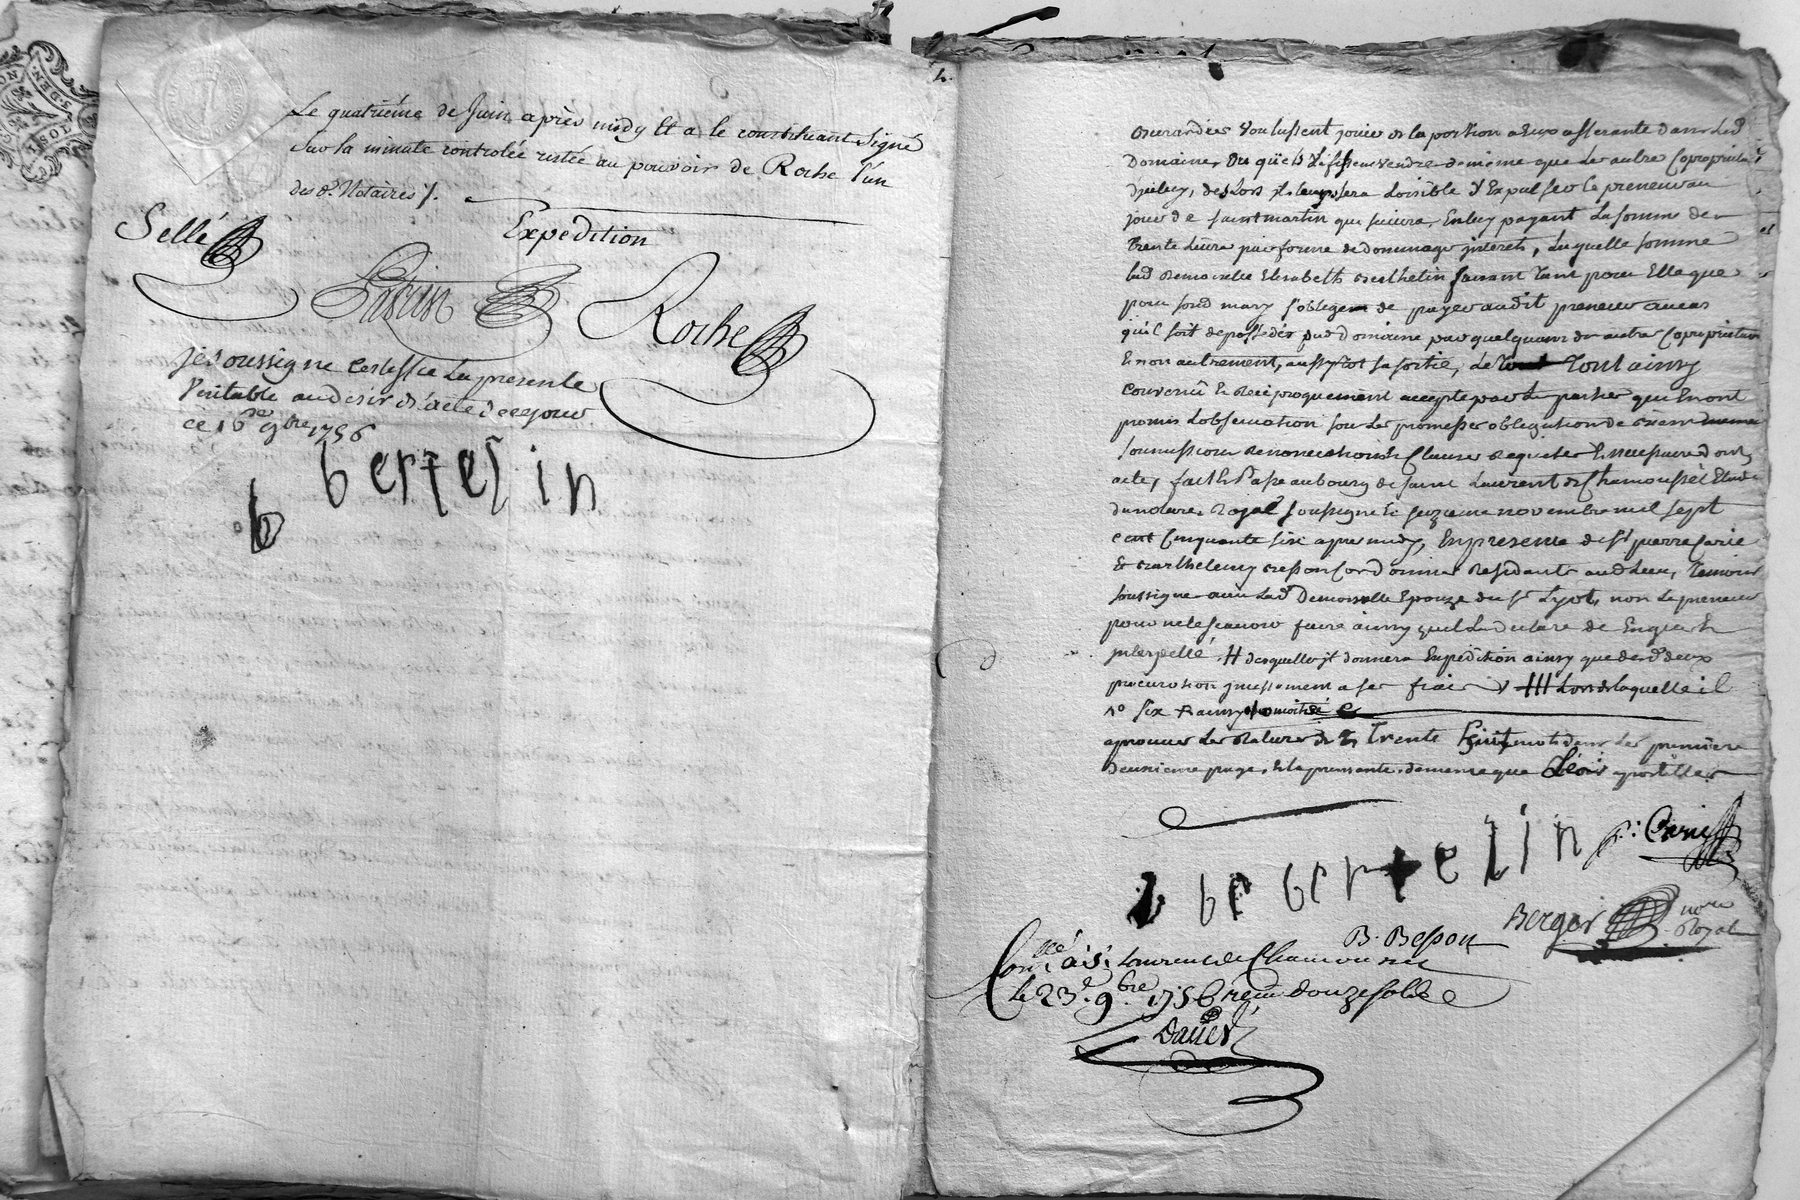 Le quatrième de Juin après midy Et a le constituant Signé
Sur la minute controlée restée au pouvoir de Roche l'un
des d. Notaires /.
Expedition
Sellé
Roche
je soussigne certiffie La presente
Veritable au desir de l'acte de ce jour
ce 16 9bre 1756
b bertelin
voulussent jouir de la portion a Eux afferante dans Led
Domaine, ou qu'ils vendre de meme que Les autre Coproprietai
des Lors jl leur sera Loisible d'Expulser le preneur au
jour de saint martin qui suivra, En luy payant La somme de
trente Livre par forme de dommage jnterets, Laquelle somme
lad Demoiselle Elisabeth berthelin faisant tant pour Elle que
pour sond mary s'oblige de payer audit preneur au cas
qu'il soit depossedés dud Domaine par quelquun des autre Coproprietaire
Et non autrement, aussytot sa sortie, Le tout ainsy
convenu Et Reciproquement accepté par Les parties qui En ont
promis L'observation sous Les promesses obligation de
soumission Renonciation Et Clause Requises Et necessaires dont
acte, fait Et Passé au bourg de saint Laurent de Chamousset Etude
du notaire Royal soussigné Le seizieme novembre mil sept
cent Cinquante six apres midy, En presence de sr pierre Carie
Et Barthelemy Besson Cordonnier Residants aud Lieu, temoins
soussigné avec Lad Demoiselle Epouze du sr Lyot, non Le preneur
pour ne le scavoir faire ainsy qu'il L'a declaré de Enquis Et
jnterpellé. # desquelles jl donnera Expedition ainsy que desd deux
procuration a ses frais # Lors de laquelle il
six
aprouvés Les Ratures de trente huit mots dans Les premiere
deuxieme page, Et la presente, de meme que apostilles
p: Carie
b be bertelin
B. Besson
Berger nore Royal
Conllé à St Laurent de Chamousset
le 23e 9bre 1756 reçu douze sols